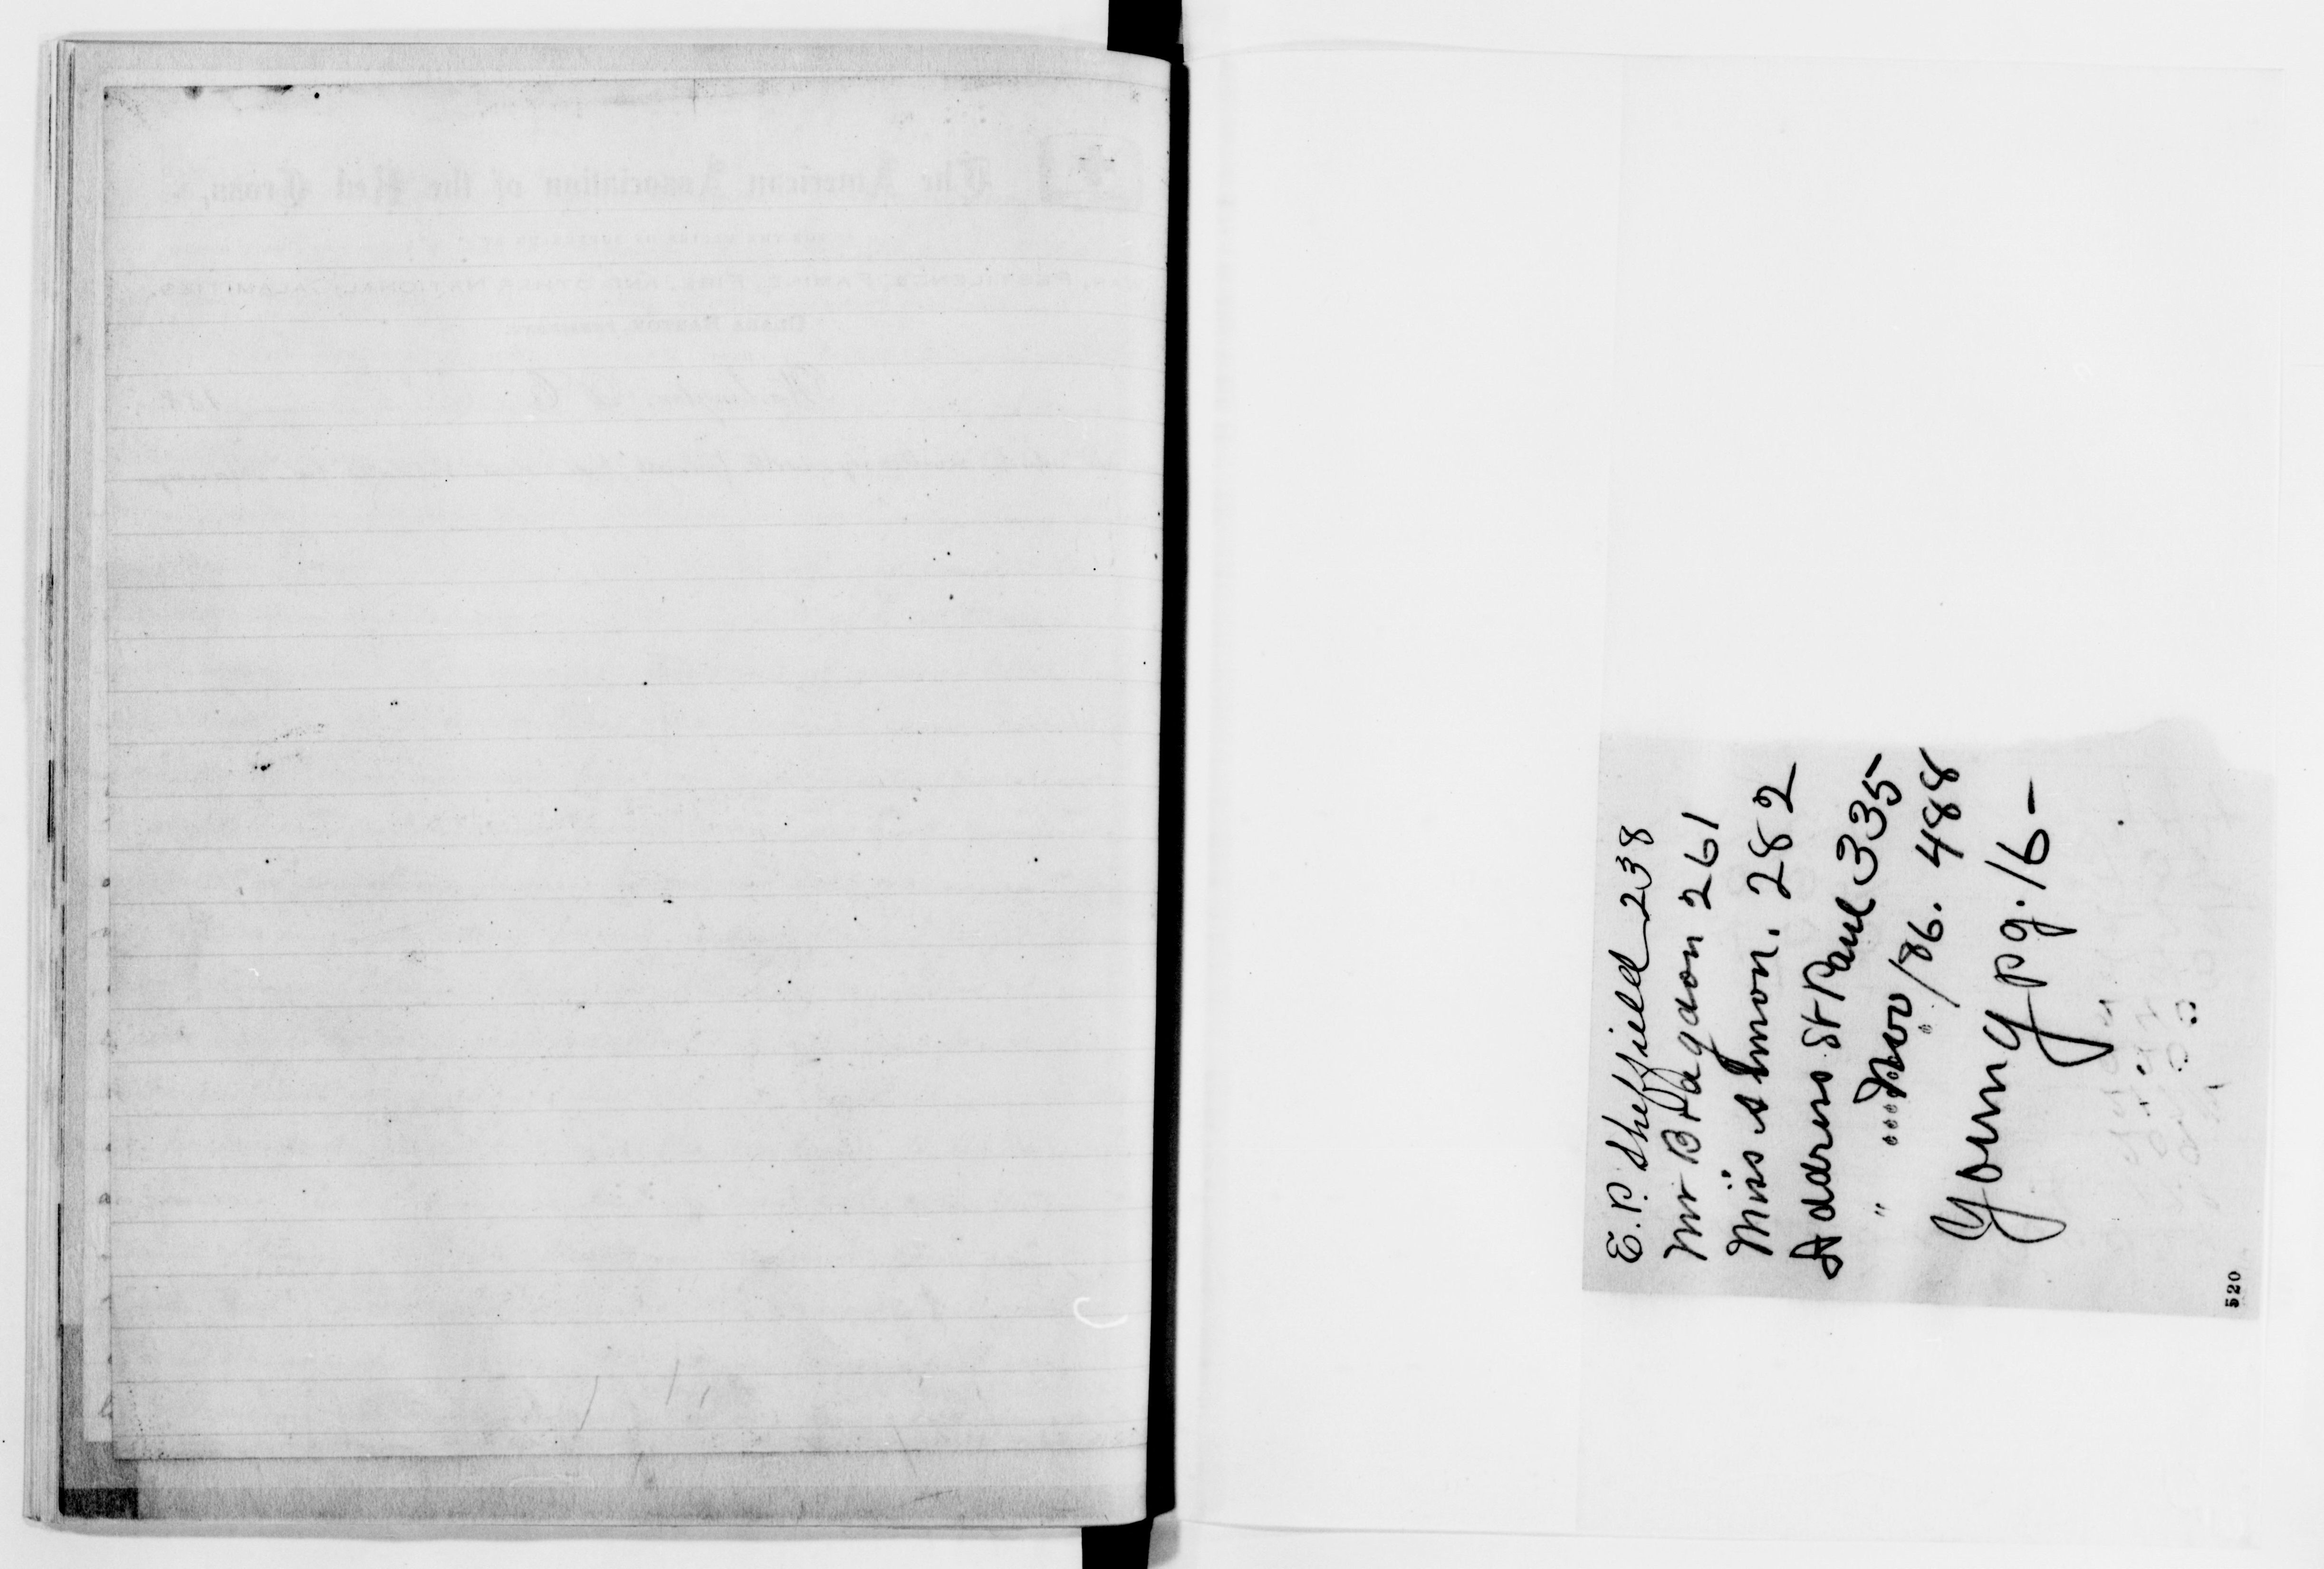 The American Association of the Red Cross,
FOR THE RELIEF OF SUFFERING BY
WAR, PESTILENCE, FAMINE, FIRE, AND OTHER NATIONAL CALAMITIES.
CLARA BARTON, PRESIDENT.
Washington, D. C.
188
E. P. Sheffield 238
Mr Bragdon 261
Miss Simon. 282
Address St Paul 335
" Nov /86. 488
Young pg. 16-
520